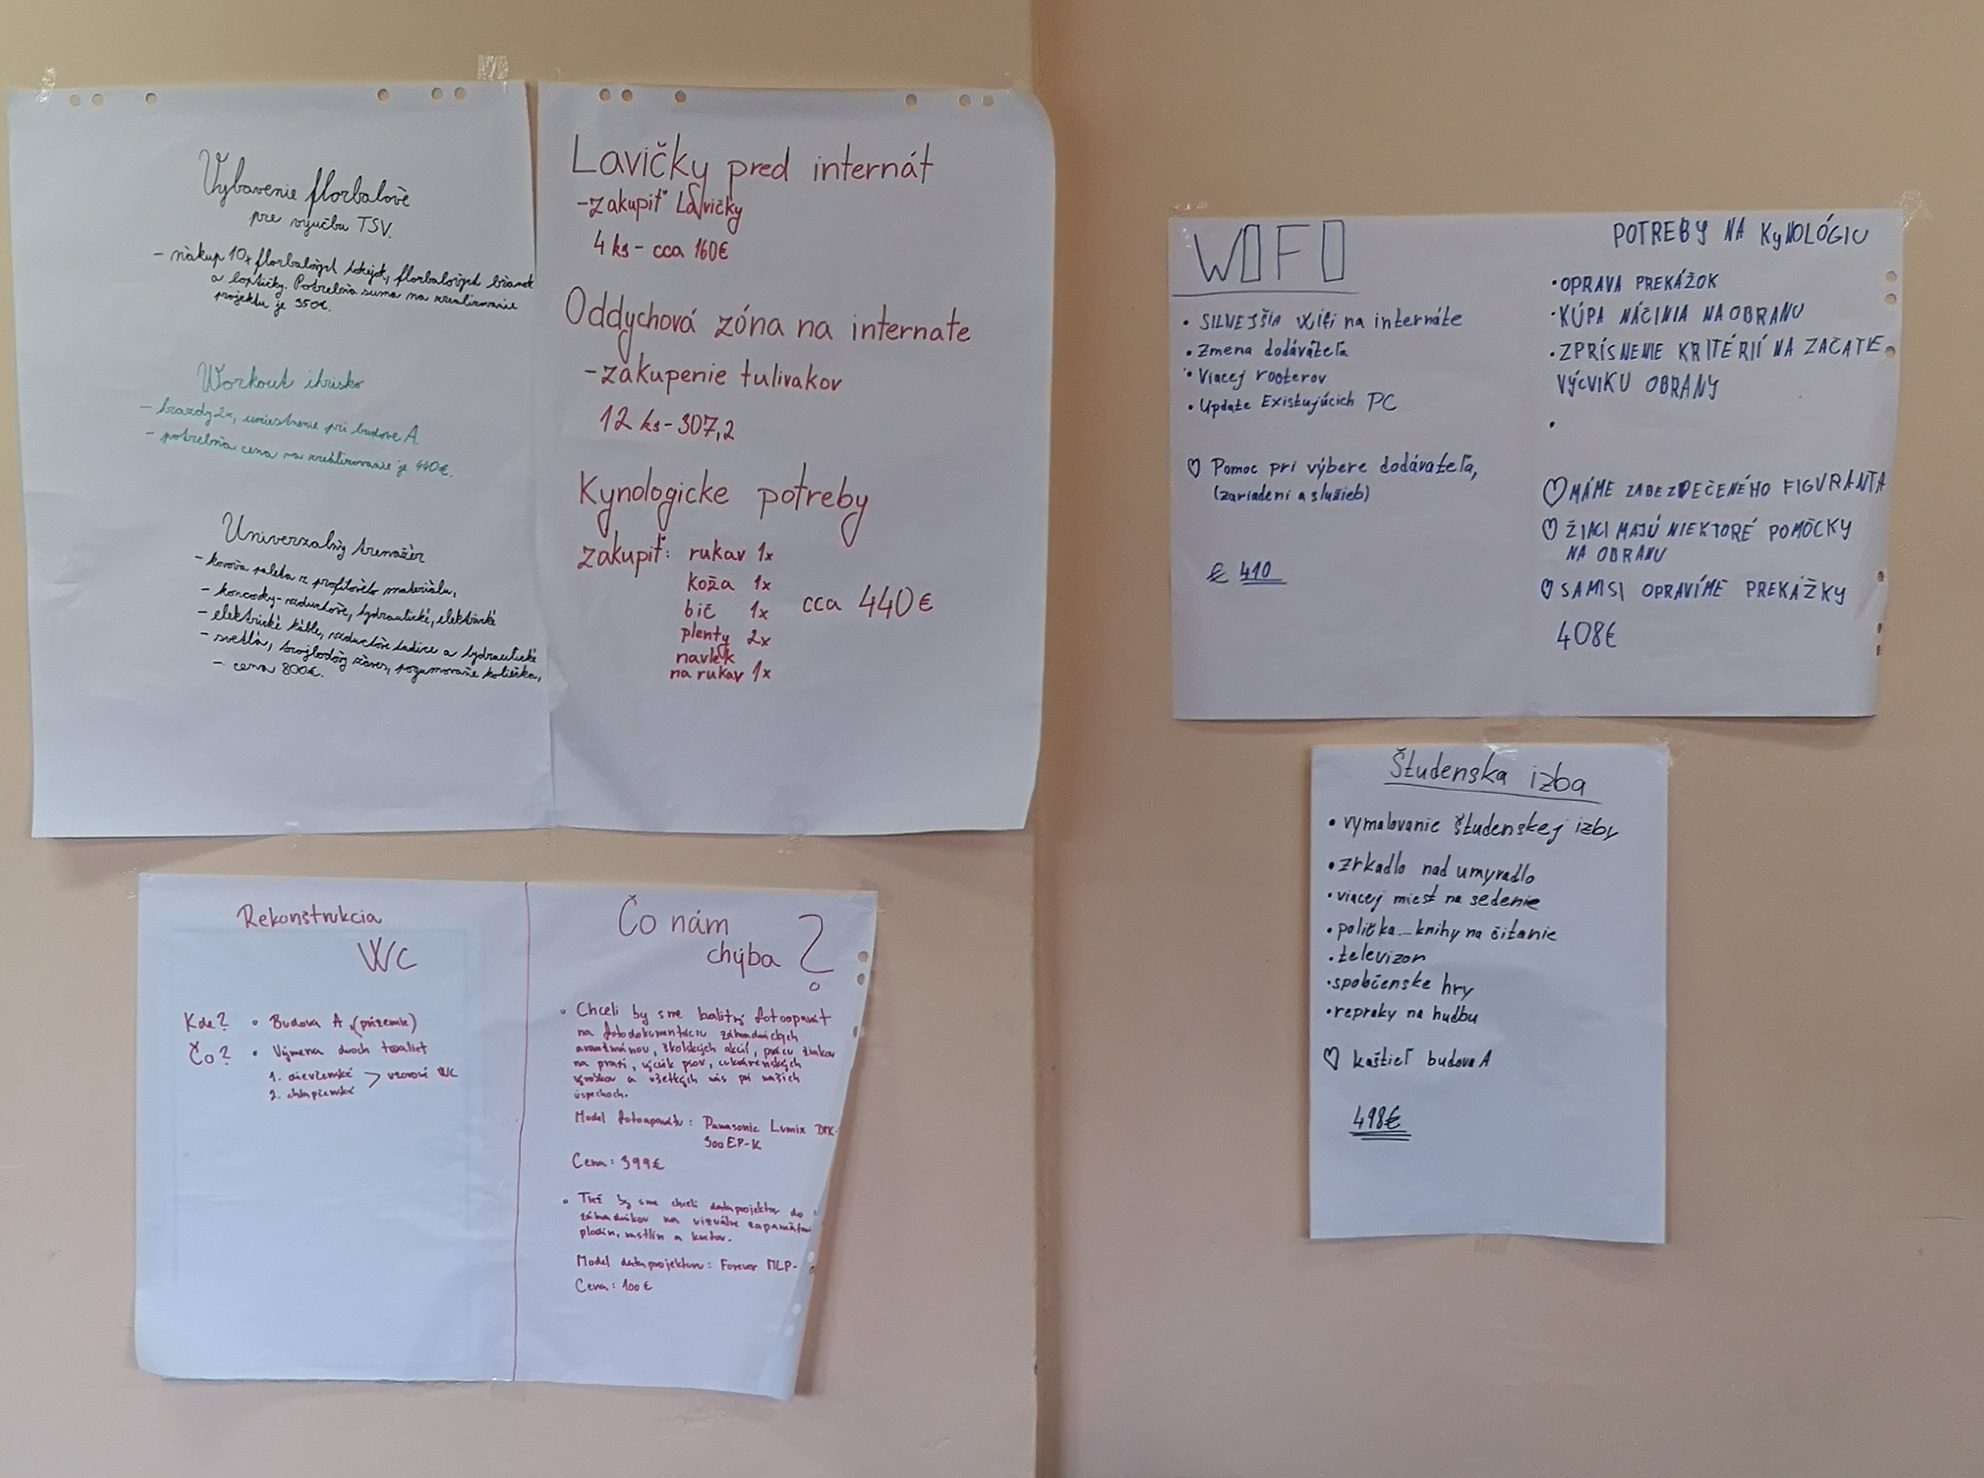 Vybavenie florbalové
pre výučbu TSV.
- nákup 10x florbalových hokejok, florbalových bránok
a loptičky. Potrebná suma na zrealizovanie
projektu je 350€.
Workout ihrisko
- hrazdy 2x, umiestnenie pri budove A.
- potrebná cena na zrealizovanie je 440€.
Univerzálny trenažér
- kovová paleta z profilového materiálu,
- koncovky - vzduchové, hydraulické, elektrické
- elektrické káble, vzduchové hadice a hydraulické
- svetlá, trojbodový záves, pogumované koliečka,
- cena 800€.
Lavičky pred internát
- zakupiť Lavičky
4 ks - cca 160€
Oddychová zóna na internate
- zakupenie tulivakov
12 ks - 307,2
Kynologicke potreby
zakupiť: rukav 1x
koža 1x
bič 1x
cca 440€
plenty 2x
navlek
na rukav 1x
WOFO
• SILNEJŠIA Wifi na internáte
• Zmena dodávateľa
• Viacej rooterov
• Update Existujúcich PC
♡ Pomoc pri výbere dodávateľa,
(zariadení a služieb)
€ 410
POTREBY NA KyNOLÓGIU
• OPRAVA PREKÁŽOK
• KÚPA NÁČINIA NA OBRANU
• ZPRÍSNENIE KRITÉRIÍ NA ZAČATIE
VÝCVIKU OBRANY
•
♡ MÁME ZABEZPEČENÉHO FIGURANTA
♡ ŽIACI MAJÚ NIEKTORÉ POMÔCKY
NA OBRANU
♡ SAMI SI OPRAVÍME PREKÁŽKY
408€
Študenska izba
• vymalovanie študenskej izby
• zrkadlo nad umyvadlo
• viacej miest na sedenie
• polička - knihy na čítanie
• televizor
• spočenske hry
• repraky na hudbu
♡ kaštieľ budova A
498€
Rekonštrukcia
WC
Kde? • Budova A (prízemie)
Čo? • Výmena dvoch toaliet
1. dievčenské > vzorové WC
2. chlapčenské
Čo nám
chýba ?
• Chceli by sme kvalitný fotoaparát
na fotodokumentáciu záhradníckych
aranžmánov, školských akcií, prácu žiakov
na praxi, výcvik psov, cukrárenských
výrobkov a všetkých nás pri našich
úspechoch.
Model fotoaparátu: Panasonic Lumix
300EP-K
Cena: 399€
• Tiež by sme chceli dataprojektor do
záhradníkov na vizuálne
plodín, rastlín a kvetov.
Model dataprojektoru: Forever MLP-
Cena: 100€